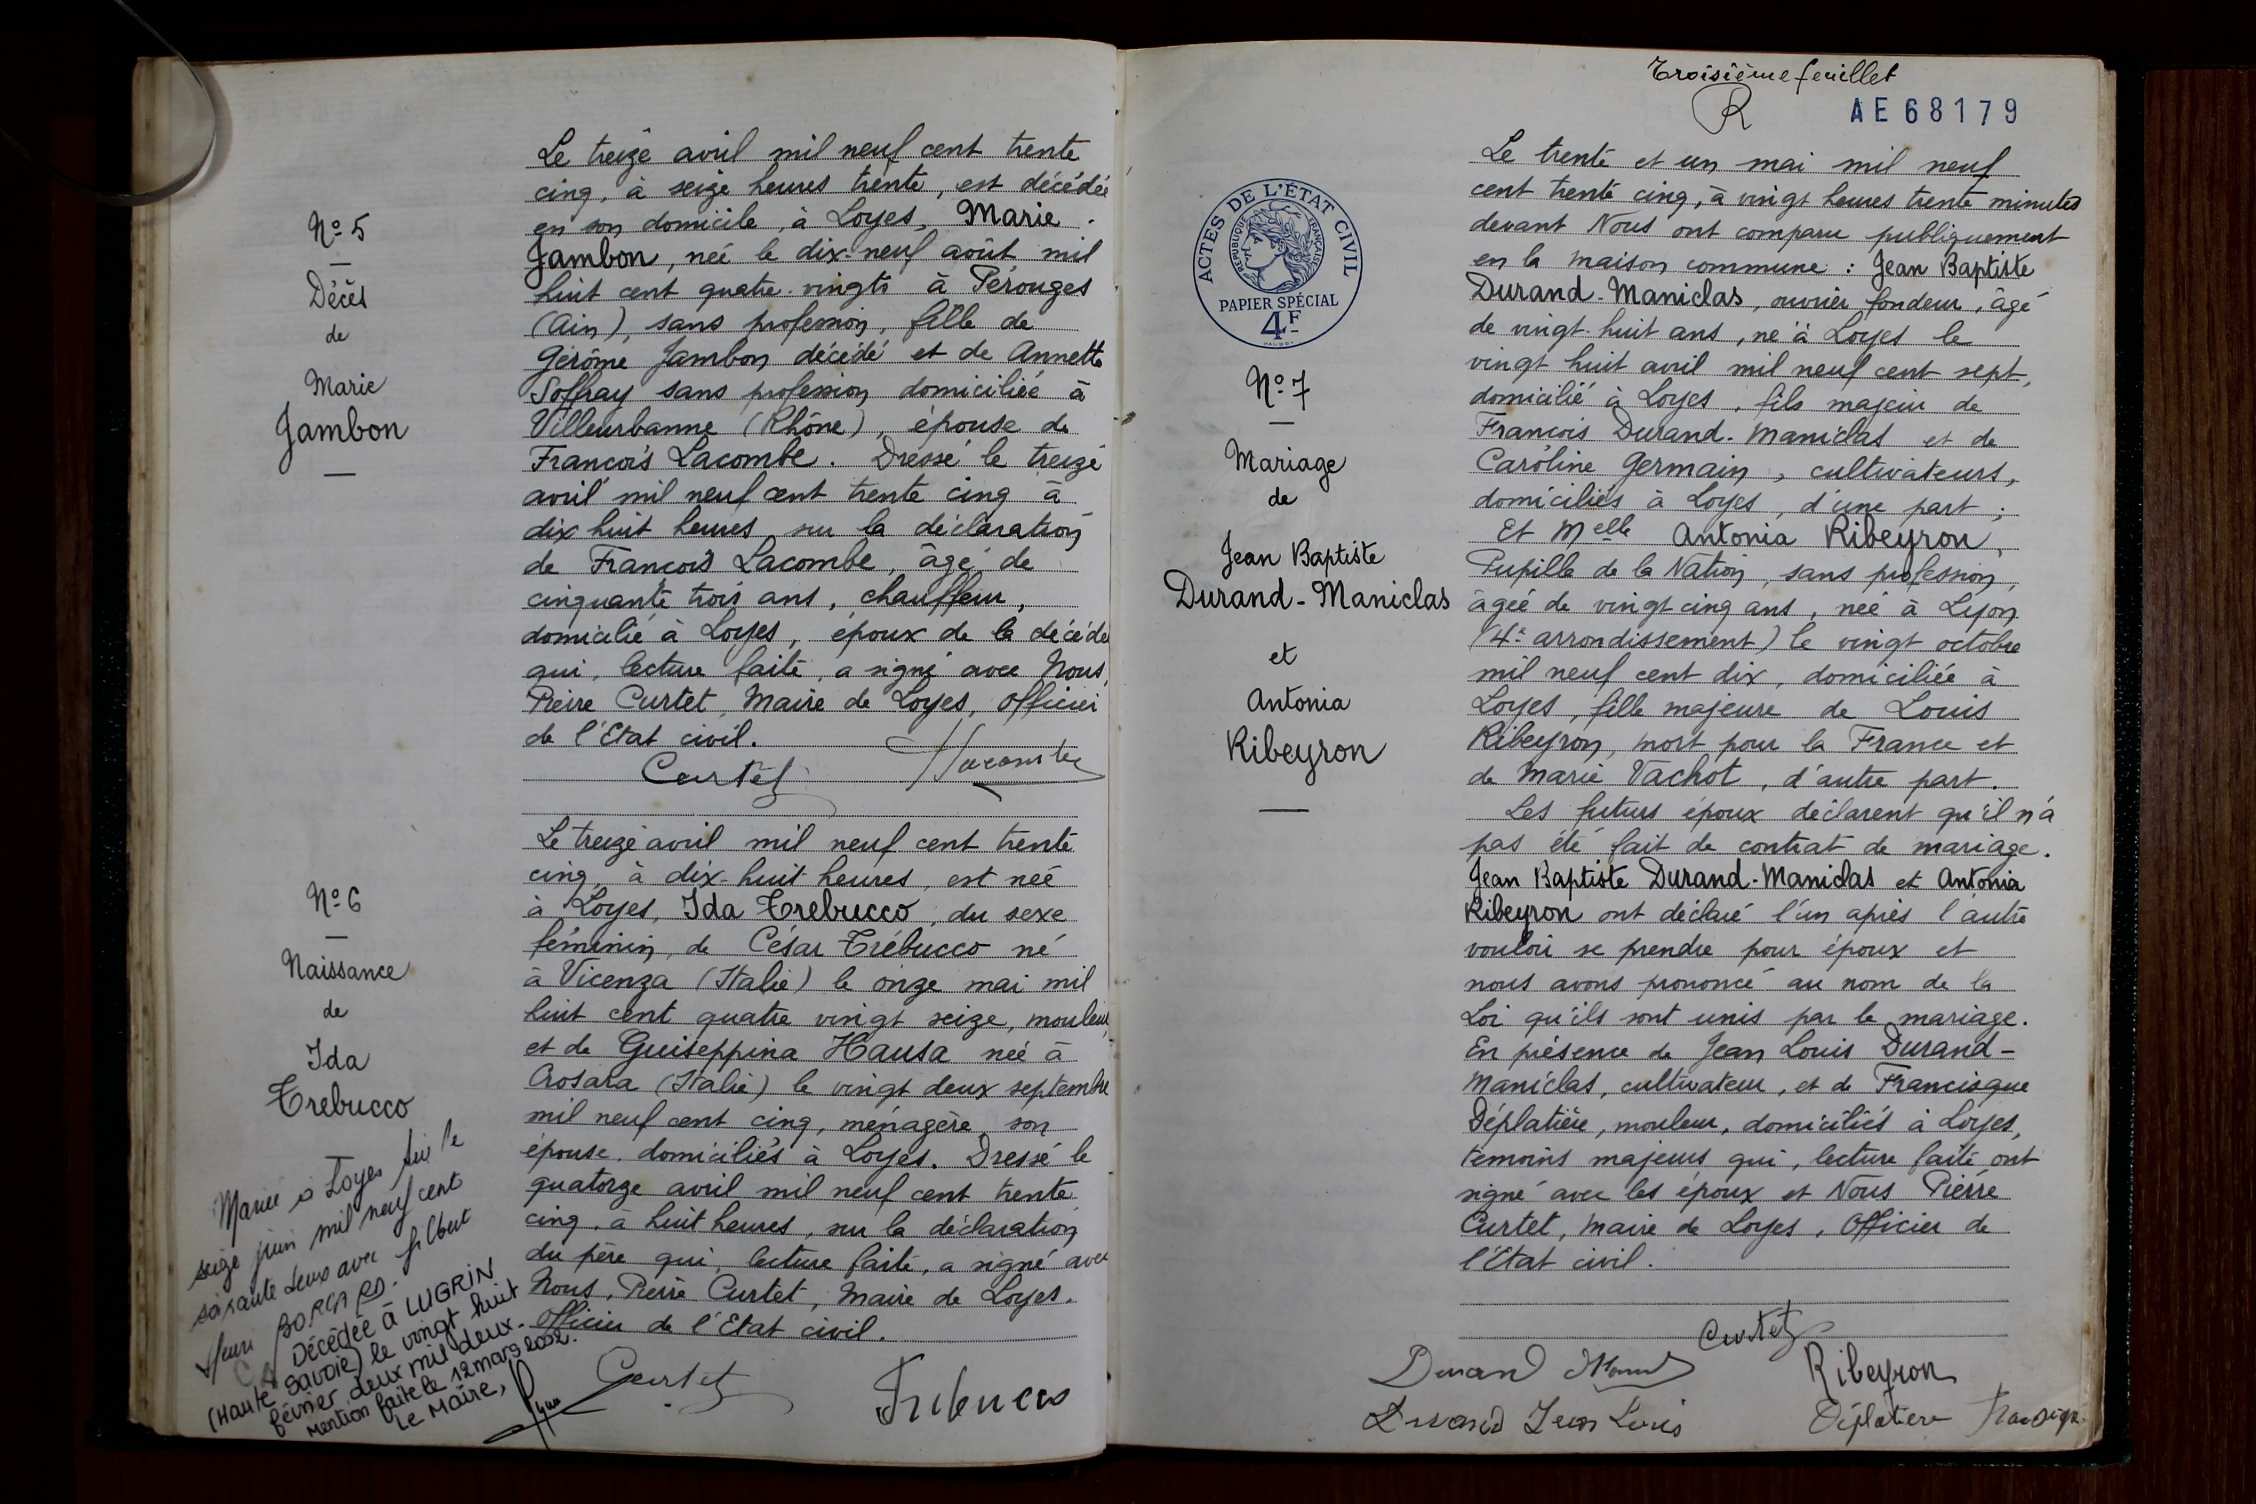 Nº 5
Décès
de
Marie
Jambon
Le treize avril mil neuf cent trente
cinq, à seize heures trente, est décédée
en son domicile, à Loyes, Marie
Jambon, née le dix-neuf août mil
huit cent quatre-vingts à Pérouges
(Ain), sans profession, fille de
Gérôme Jambon décédé et de Annette
Soffray sans profession domiciliée à
Villeurbanne (Rhône), épouse de
François Lacombe. Dressé le treize
avril mil neuf cent trente cinq à
dix huit heures sur la déclaration
de François Lacombe, âgé de
cinquante trois ans, chauffeur,
domicilié à Loyes, époux de la décédé
qui, lecture faite, a signé avec Nous,
Pierre Curtet, Maire de Loyes, officier
de l'Etat civil.
Curtet Lacombe
Nº 6
Naissance
de
Ida
Trebucco
Le treize avril mil neuf cent trente
cinq, à dix-huit heures, est née
à Loyes, Ida Trebucco, du sexe
féminin, de César Trébucco né
à Vicenza (Italie) le onze mai mil
huit cent quatre vingt seize, mouleur,
et de Guiseppina Hausa née à
Crosara (Italie) le vingt deux septembre
mil neuf cent cinq, ménagère, son
épouse, domiciliés à Loyes. Dressé le
quatorze avril mil neuf cent trente
cinq, à huit heures, sur la déclaration
du père qui, lecture faite, a signé avec
Nous, Pierre Curtet, Maire de Loyes.
officier de l'Etat civil.
Curtet Trebucco
Mariée à Loyes le
seize juin mil neuf cent
soixante deux avec Gilbert
Henri BORCARD.
Décédée à LUGRIN
(Haute Savoie) le vingt huit
février deux mil deux.
Mention faite le 12 mars 2002.
Le Maire,
Troisième feuillet
R
AE 68179
ACTES DE L'ÉTAT CIVIL
RÉPUBLIQUE FRANÇAISE
PAPIER SPÉCIAL
4F
Nº 7
Mariage
de
Jean Baptiste
Durand-Maniclas
et
Antonia
Ribeyron
Le trente et un mai mil neuf
cent trente cinq, à vingt heures trente minutes
devant Nous ont comparu publiquement
en la maison commune : Jean Baptiste
Durand-Maniclas, ouvrier fondeur, âgé
de vingt-huit ans, né à Loyes le
vingt huit avril mil neuf cent sept,
domicilié à Loyes, fils majeur de
François Durand-Maniclas et de
Caroline Germain, cultivateurs,
domiciliés à Loyes, d'une part ;
Et Melle Antonia Ribeyron,
Pupille de la Nation, sans profession,
âgée de vingt cinq ans, née à Lyon
(4e arrondissement) le vingt octobre
mil neuf cent dix, domiciliée à
Loyes, fille majeure de Louis
Ribeyron, mort pour la France et
de Marie Vachot, d'autre part.
Les futurs époux déclarent qu'il n'a
pas été fait de contrat de mariage.
Jean Baptiste Durand-Maniclas et Antonia
Ribeyron ont déclaré l'un après l'autre
vouloir se prendre pour époux et
nous avons prononcé au nom de la
Loi qu'ils sont unis par le mariage.
En présence de Jean Louis Durand-
Maniclas, cultivateur, et de Francisque
Déplatière, mouleur, domiciliés à Loyes,
témoins majeurs qui, lecture faite ont
signé avec les époux et Nous Pierre
Curtet, Maire de Loyes, Officier de
l'Etat civil.
Curtet
Durand Ribeyron
Durand Jean Louis Déplatière